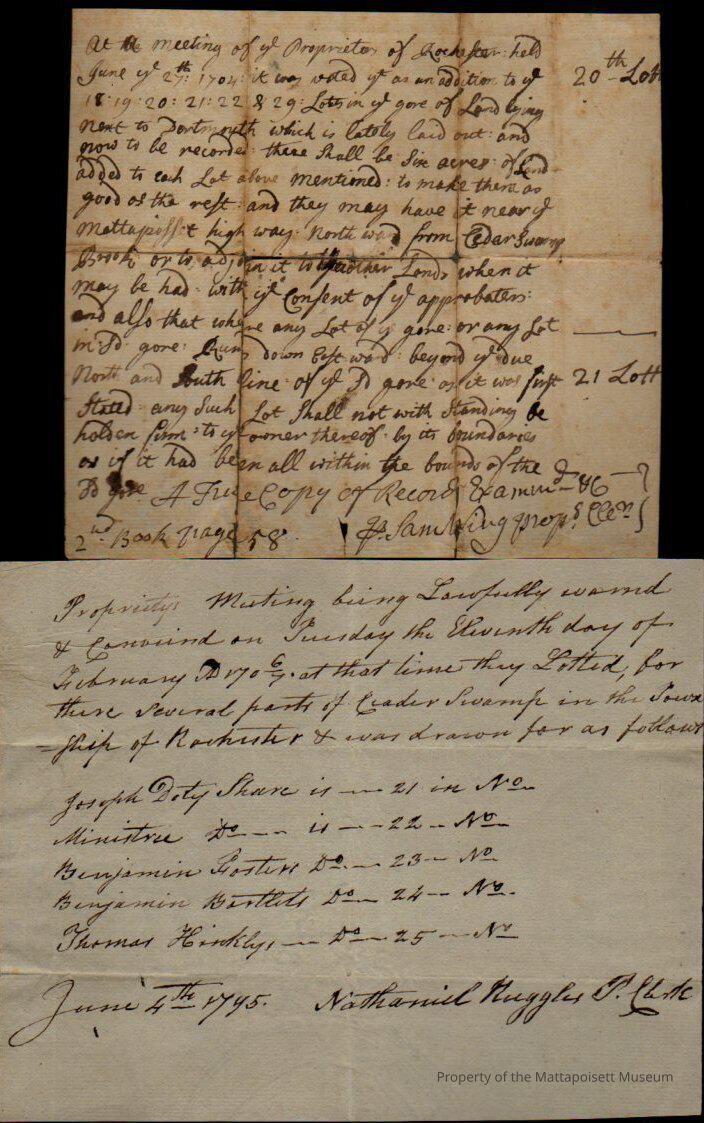 At a meeting of ye Proprietors of Rochester: held
June ye 27th: 1704: it was voted yt as an addition to ye
20th Lott
18: 19: 20: 21: 22 & 29: Lots in ye gore of Land lying
next to Dartmouth which is lately laid out: and
now to be recorded: there Shall be Six acres: of Land
added to each Lot above mentioned: to make them as
good as the rest: and they may have it near ye
Mattapoisst high way: North ward from Cedar Swamp
Brook or to adjoin it to other Lands when it
may be had: with ye Consent of ye approbaters:
and also that where any Lot of ye gore: or any Lot
in sd gore: Runs down East ward: beyond ye due
North and South line: of ye sd gore: as it was first
21 Lott
Stated: any Such Lot Shall not with Standing be
holden firm: to ye owner thereof: by its boundaries
as if it had been all within the bounds of the
sd gore A True Copy of Record Examind
2nd Book page 58
Pr Sam Wing proprs Cler
Proprietys Meeting being Lawfully warnd
& Convend on Tuesday the Eleventh day of
February AD 170 6/7 at that time they Lotted, for
there several parts of Ceader Swamp in the Town
=ship of Rochester & was drawn for as follows
Joseph Doty Share is — 21 in No
Ministree Do — is — 22 — No
Benjamin Fosters Do — 23 — No
Benjamin Bartlets Do — 24 — No
Thomas Hinklys — Do — 25 — No
June 4th 1795. Nathaniel Ruggles P. Clerk
Property of the Mattapoisett Museum